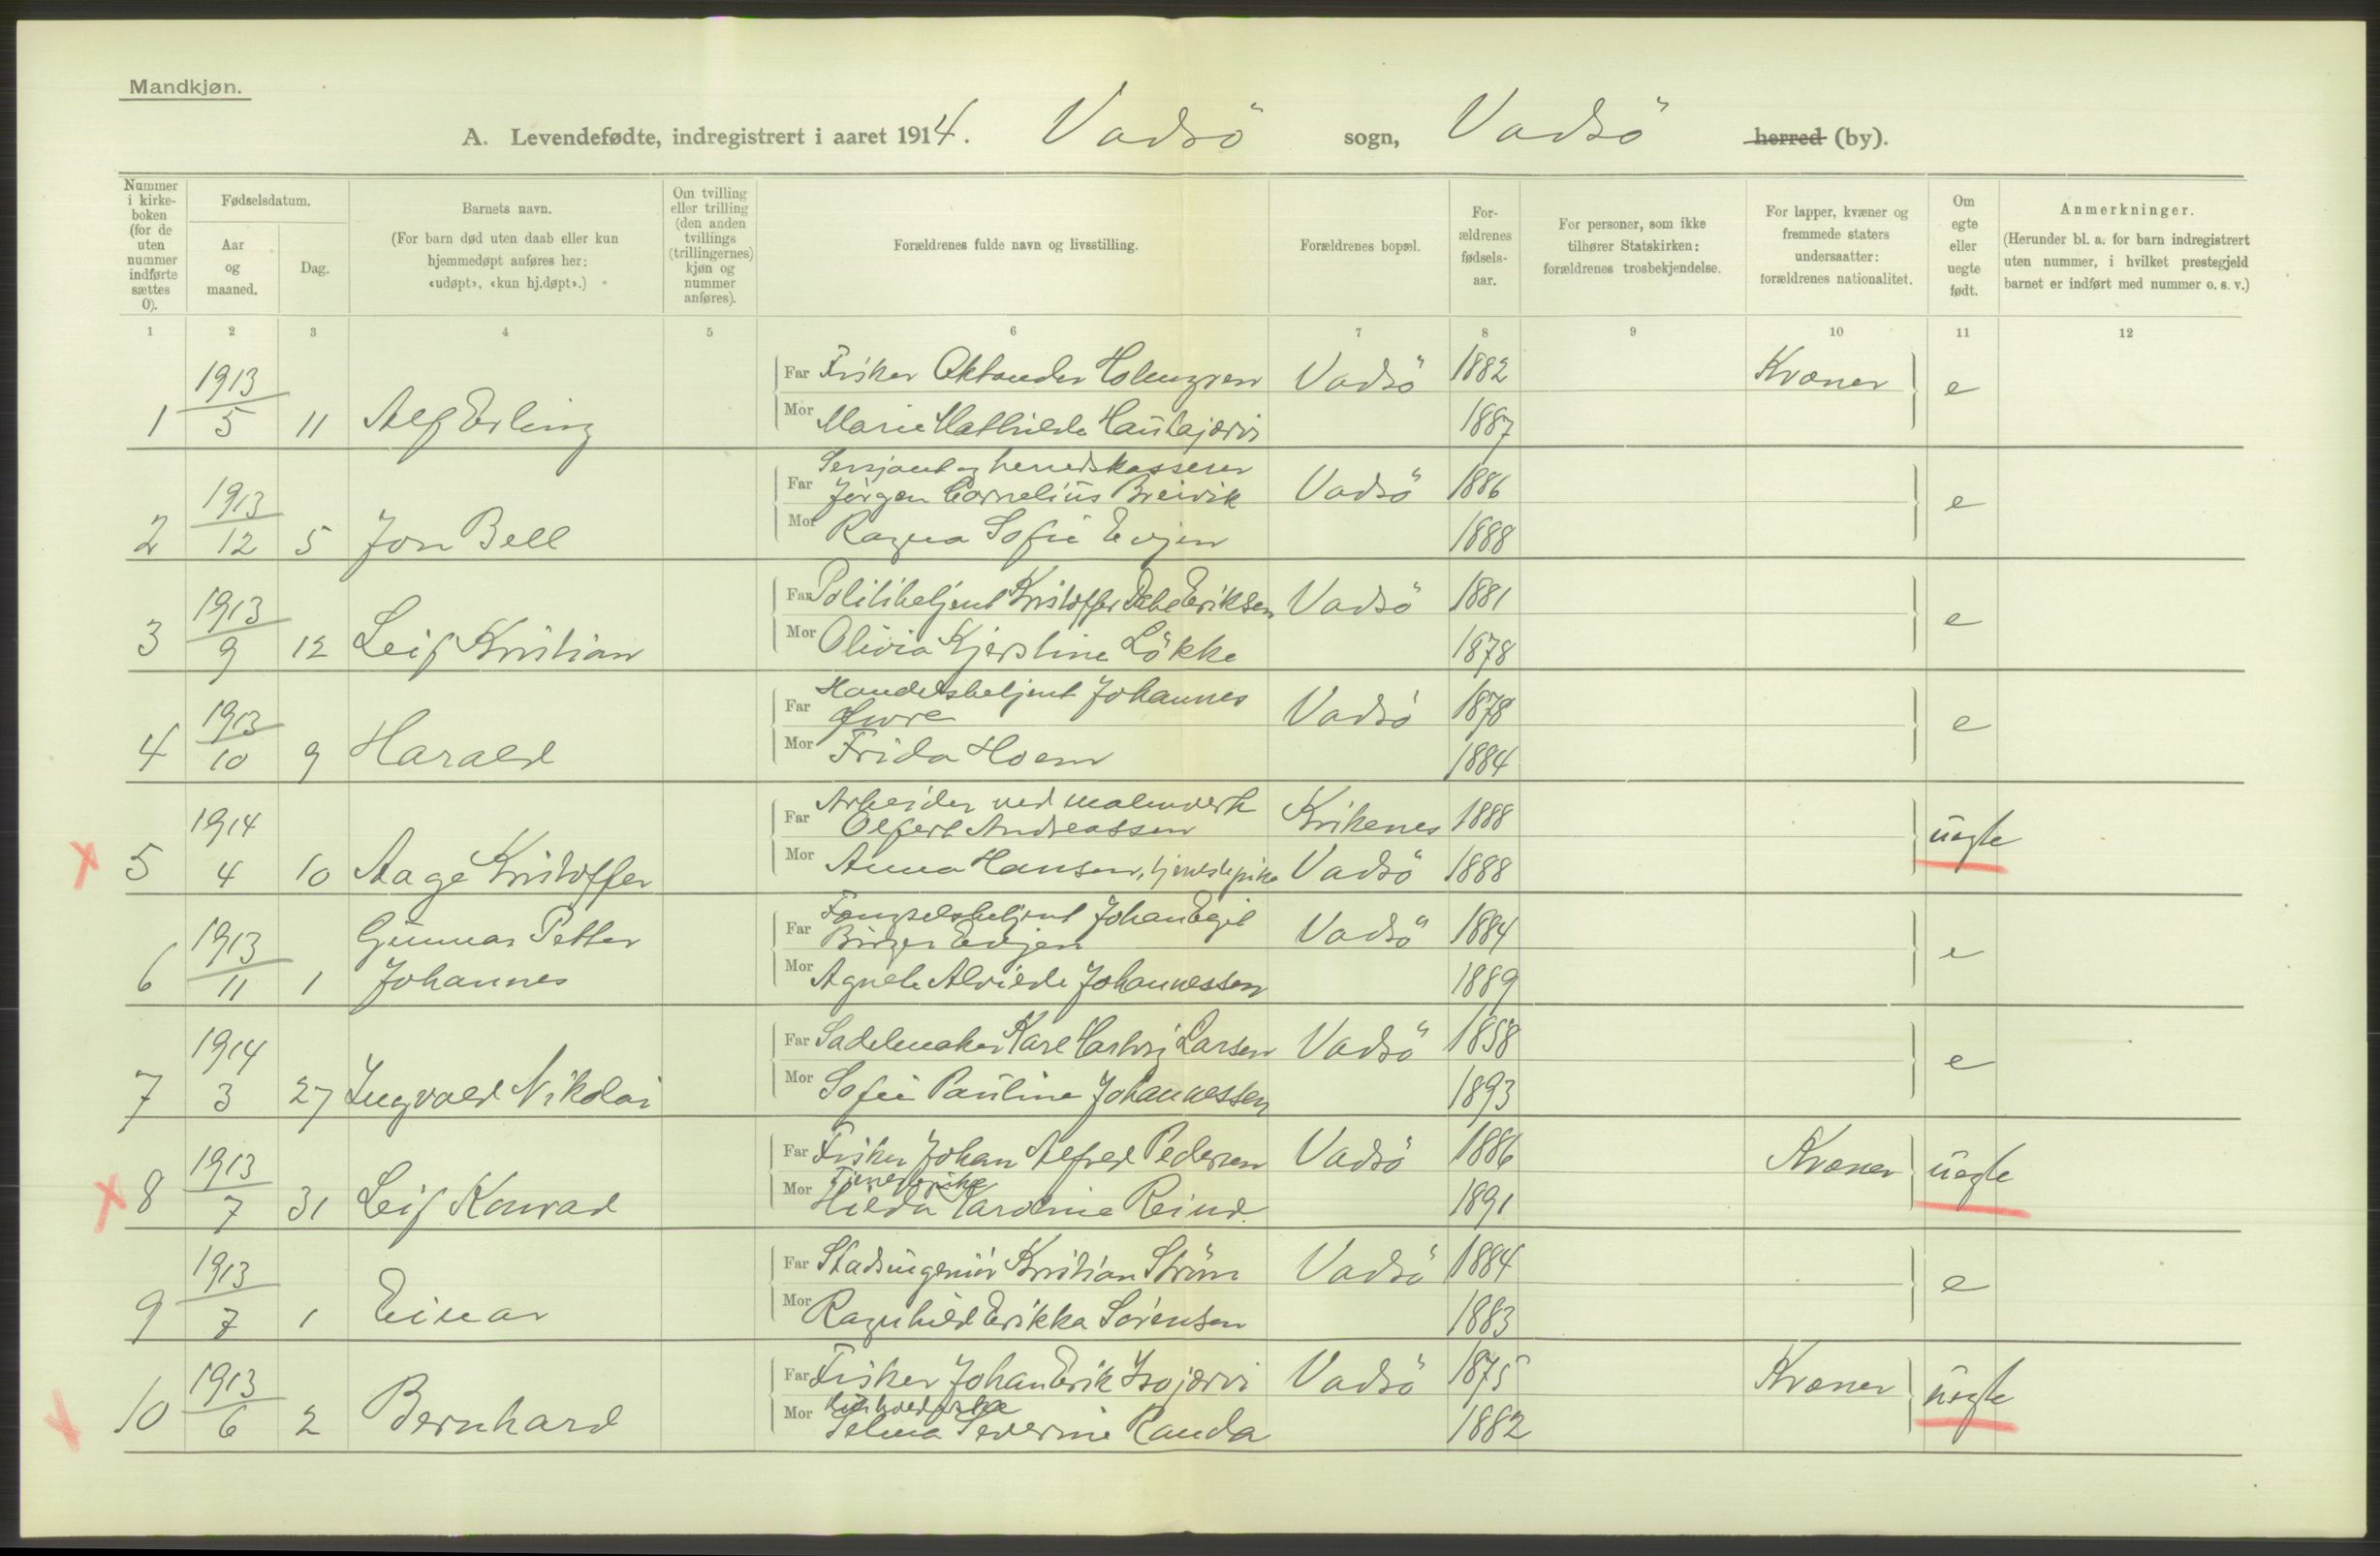 Mandkjøn.
A. Levendefødte, indregistrert i aaret 1914. Vadsö sogn, Vadsö herred (by).
Nummer i kirke-boken (for de uten nummer indførte sættes 0).
Fødselsdatum.
Aar og maaned.
Dag.
Barnets navn.
(For barn død uten daab eller kun hjemmedøpt anføres her: «udøpt», «kun hj.døpt».)
Om tvilling eller trilling (den anden tvillings (trillingernes) kjøn og nummer anføres).
Forældrenes fulde navn og livsstilling.
Forældrenes bopæl.
For-ældrenes fødsels-aar.
For personer, som ikke tilhører Statskirken: forældrenes trosbekjendelse.
For lapper, kvæner og fremmede staters undersaatter: forældrenes nationalitet.
Om egte eller uegte født.
Anmerkninger.
(Herunder bl. a. for barn indregistrert uten nummer, i hvilket prestegjeld barnet er indført med nummer o. s. v.)
1 2 3 4 5 6 7 8 9 10 11 12
1913 Far Fisker Holmgren Vadsö 1882 Kvæner e
1 5 11 Alf Erling Mor Marie Mathilde 1887
Sersjant og herredskasserer
1913 Far Jörgen Cornelius Breivik Vadsö 1886 e
2 12 5 Jon Bell Mor Ragna Sofie Evjen 1888
1913 Far Politibetjent Kristoffer Eriksen Vadsö 1881 e
3 9 12 Leif Kristian Mor Olivia Kjerstine Lökke 1878
Handelsbetjent Johannes
1913 Far Vadsö 1878 e
4 10 9 Harald Mor Frida Hoem 1884
Arbeider ved malmverk
1914 Far Olfert Andreassen Kirkenes 1888 uegte
5 4 10 Aage Kristoffer Mor Anna Hansen, tjenestepike Vadsö 1888
Gunnar Petter Fængselsbetjent Johan Egil
1913 Far Birger Evjen Vadsö 1884 e
6 11 1 Johannes Mor Agnete Alvilde Johannessen 1889
1914 Far Sadelmaker Karl Hartvig Larsen Vadsö 1858 e
7 3 27 Ingvald Nikolai Mor Sofie Pauline Johannessen 1893
1913 Far Fisker Johan Alfred Pedersen Vadsö 1886 Kvæner uegte
Tjenestepike
8 7 31 Leif Konrad Mor Hilda Karoline Reind. 1891
1913 Far Stadsingeniör Kristian Ström Vadsö 1884 e
9 7 1 Einar Mor Ragnhild Erikka Sörensen 1883
1913 Far Fisker Johan Erik Isojærvi Vadsö 1875 Kvæner uegte
10 6 2 Bernhard Mor Selma Severine Randa 1882